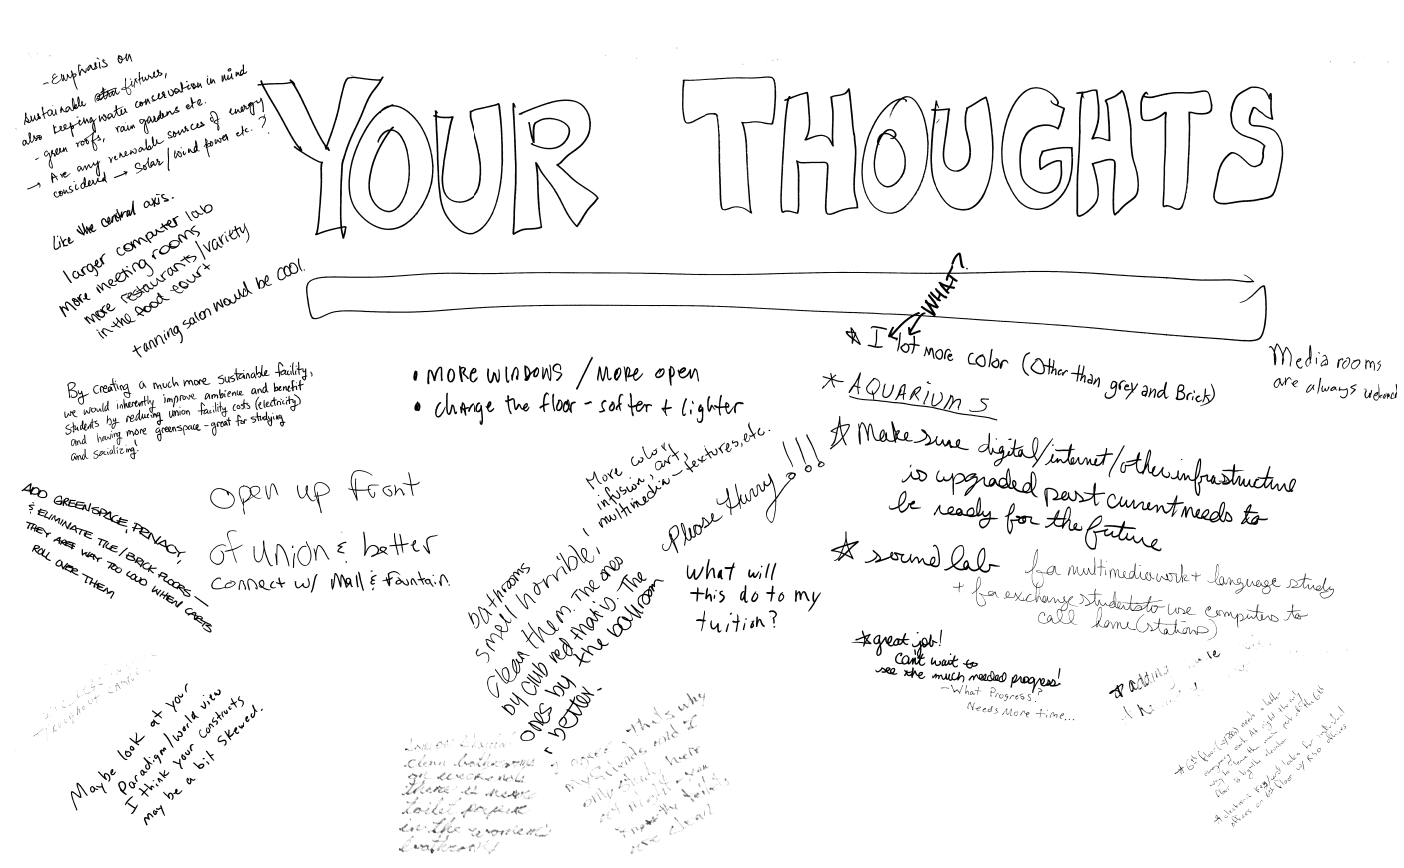 YOUR THOUGHTS
- Emphasis on
sustainable fixtures,
also keeping water conservation in mind
- green roofs, rain gardens etc.
→ Are any renewable sources of energy
considered → Solar/Wind power etc.?
Like the central axis.
larger computer lab
more meeting rooms
more restaurants/variety
in the food court
tanning salon would be cool.
By creating a much more sustainable facility,
we would inherently improve ambience and benefit
students by reducing union facility costs (electricity)
and having more greenspace - great for studying
and socializing!
ADD GREENSPACE, PRIVACY,
& ELIMINATE TILE/BRICK FLOORS —
THEY ARE WAY TOO LOUD WHEN CARTS
ROLL OVER THEM
Open up front
of union & better
connect w/ Mall & fountain.
Maybe look at your
Paradigm/world view
I think your constructs
may be a bit skewed.
• MORE WINDOWS / More open
• change the floor - softer + lighter
More color,
infusion, art,
multimedia - textures, etc.
Please Hurry!!!
bathrooms
smell horrible,
clean them. The ones
by club red that is. The
ones by the ballroom
better.
What will
this do to my
tuition?
clean bathrooms
on weekends
there is never
toilet paper
in the women's
bathrooms
that's why
my friends and I
only study here
at night
the toilets
are clean!
WHAT?
* I lot more color (Other than grey and Brick)
* AQUARIUMS
☆ Make sure digital/internet/other infrastructure
is upgraded past current needs to
be ready for the future
☆ sound lab for multimedia work + language study
+ for exchange students to use computers to
call home (stations)
☆ great job!
Can't wait to
see the much needed progress!
- What Progress?
Needs More time...
Media rooms
are always
* adding